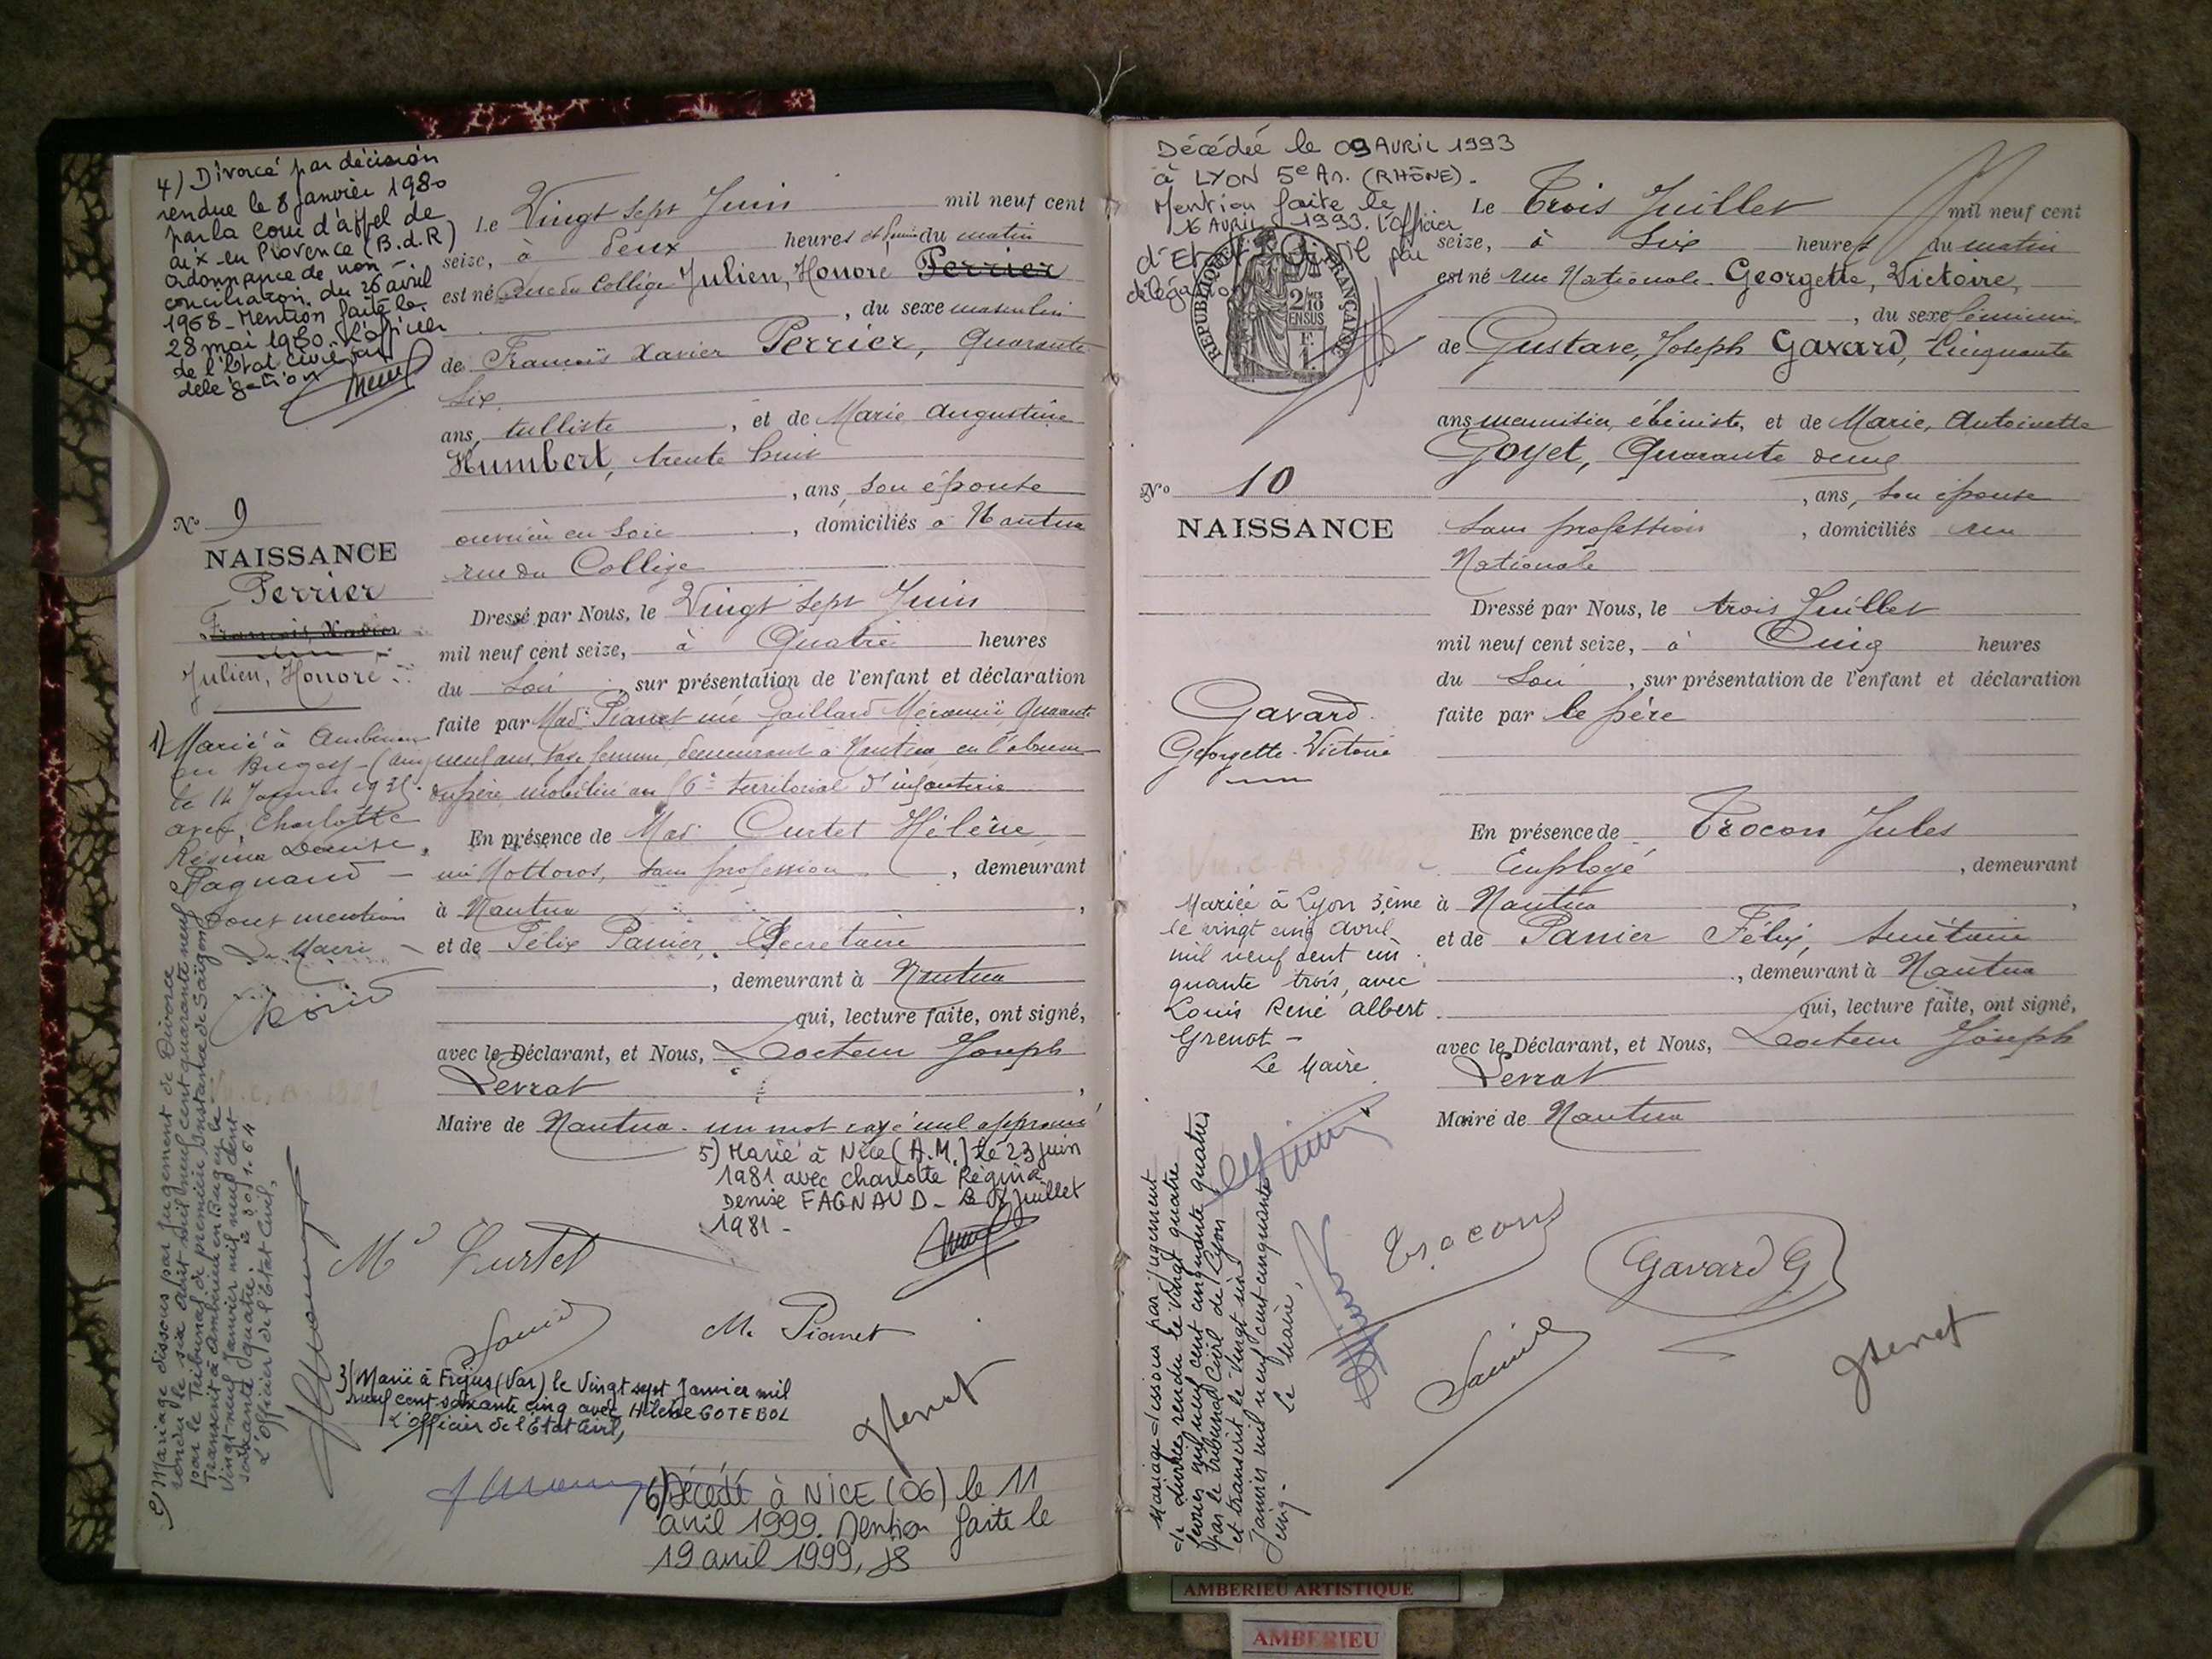 4) Divorcé par décision
rendue le 8 janvier 1980
par la cour d'appel de
aix-en Provence (B.d.R)
ordonnance de non-
conciliation du 26 avril
1968 - Mention faite le
28 mai 1980. L'officier
de l'état civil par
délégation
Le Vingt sept Juin mil neuf cent
seize, à deux heures et demie du matin
est né rue du Collège Julien, Honoré Perrier
, du sexe masculin
de François Xavier Perrier, Quarante
six
ans, tulliste, et de Marie Augustine
Humbert, trente huit
, ans, son épouse
ouvrière en soie, domiciliés à Nantua
rue du Collège
Dressé par Nous, le Vingt sept Juin
mil neuf cent seize, à Quatre heures
du soir, sur présentation de l'enfant et déclaration
faite par Mad. Pianet née Gaillard Quarante
neuf ans, sage femme, demeurant à Nantua, en l'absence
du père mobilisé au 56e territorial d'infanterie
En présence de Mad. Curtet Hélène
née sans profession, demeurant
à Nantua,
et de Félix Panier, Secrétaire
, demeurant à Nantua
qui, lecture faite, ont signé,
avec le Déclarant, et Nous, Docteur Joseph
Levrat,
Maire de Nantua. un mot rayé nul approuvé
No 9
NAISSANCE
Perrier
François, Xavier
Julien, Honoré
1) Marié à Ambérieu
en Bugey (Ain)
le 14 Janvier
avec Charlotte
Régina Denise
Fagnaud -
Pour mention
Le Maire
2) Mariage dissous par jugement de Divorce
rendu le six août mil neuf cent quarante neuf
par le Tribunal de première instance de Saïgon
Transcrit à Ambérieu en Bugey le
Vingt-neuf Janvier mil neuf cent
soixante quatre. le 30.1.64
L'officier de l'état Civil,
5) Marié à Nice (A.M.) le 23 juin
1981 avec Charlotte Régina
Denise FAGNAUD - Le juillet
1981 -
Md Curtet
M. Pianet
3) Marié à Fréjus (Var) le Vingt sept Janvier mil
neuf cent soixante cinq avec Hélène GOTEBOL
L'officier de l'Etat Civil,
6) Décédé à NICE (06) le 11
avril 1999. Mention faite le
19 avril 1999, JS
Décédée le 09 AVRIL 1993
à LYON 5e Ar. (RHÔNE).
Mention faite le
16 AVRIL 1993. L'officier
d'Etat Civil par
délégation
REPUBLIQUE FRANÇAISE
2/10 EN SUS
Le Trois Juillet mil neuf cent
seize, à Six heures du matin
est né rue Nationale Georgette, Victoire,
, du sexe féminin
de Gustave, Joseph Gavard, Cinquante
ans menuisier ébéniste, et de Marie, Antoinette
Goyet, Quarante deux
, ans, son épouse
sans profession, domiciliés rue
Nationale
Dressé par Nous, le trois Juillet
mil neuf cent seize, à Cinq heures
du soir, sur présentation de l'enfant et déclaration
faite par le père
En présence de Trocon Jules
Employé, demeurant
à Nantua,
et de Panier Félix, Secrétaire
, demeurant à Nantua
qui, lecture faite, ont signé,
avec le Déclarant, et Nous, Docteur Joseph
Levrat
Maire de Nantua
No 10
NAISSANCE
Gavard
Georgette-Victoire
Mariée à Lyon 3ème
le vingt cinq avril
mil neuf cent cin
quante trois, avec
Louis René Albert
Grenot -
Le Maire
Mariage dissous par jugement
de divorce rendu le vingt quatre
février mil neuf cent cinquante quatre
par le tribunal Civil de Lyon
et transcrit le Vingt six
Janvier mil neuf cent cinquante
cinq -
Le Maire,
Trocon
Gavard G
AMBERIEU ARTISTIQUE
AMBERIEU